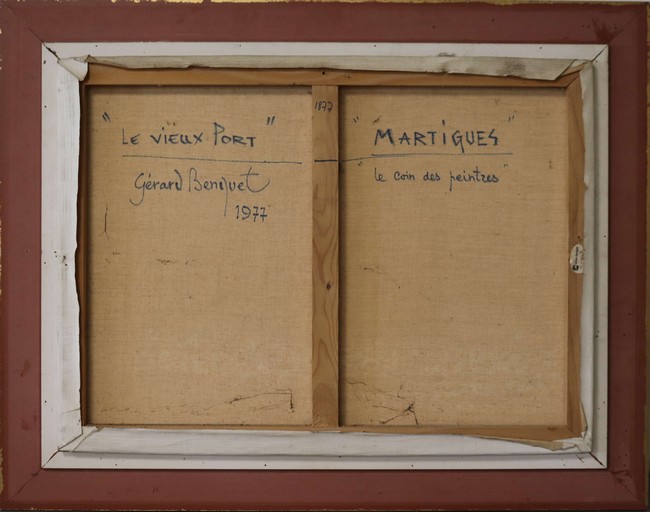 "LE VIEUX PORT"
Gérard Beniquet
1977
1877
"MARTIGUES"
"le coin des peintres"